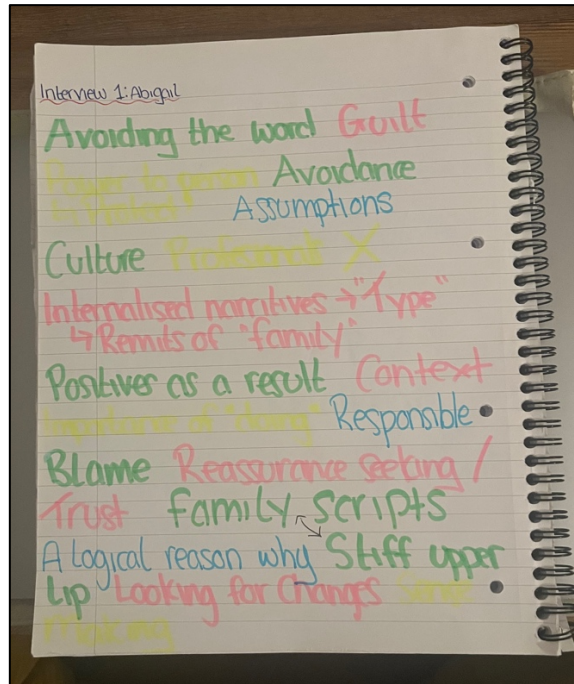 Interview 1: Abigail
Avoiding the word Guilt
Power to person Avoidance
↳ Protect Assumptions
Culture Proffisionals X
Internalised narritives → "Type"
↳ Remits of "family"
Positives as a result Context
Importance of "doing" Responsible
Blame Reassurance seeking /
Trust family scripts
A logical reason why Stiff upper
Lip Looking for Changes Sense
Making